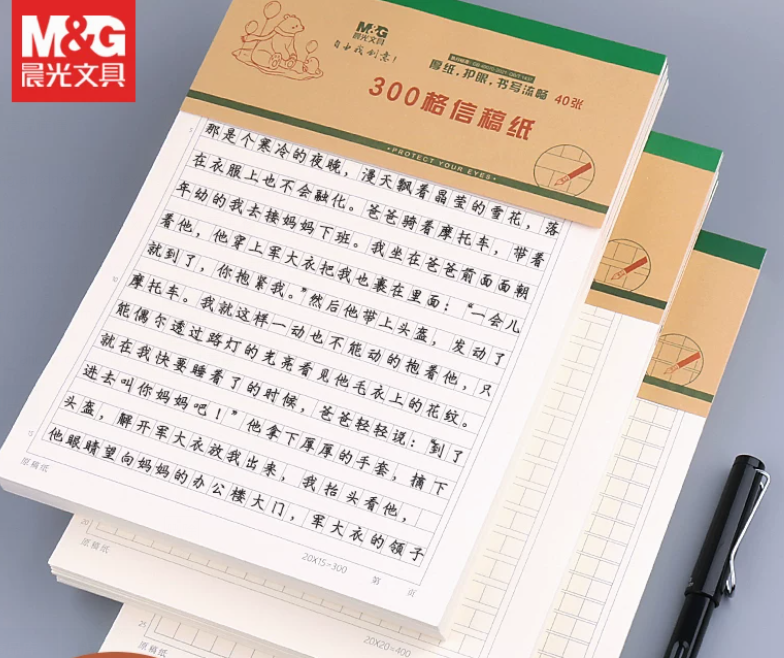 M&G
晨光文具
M&G
晨光文具
自由我创意!
厚纸.护眼.书写流畅 40张
300格信稿纸
PROTECT YOUR EYES
那是个寒冷的夜晚，漫天飘着晶莹的雪花，落
在衣服上也不会融化。爸爸骑着摩托车，带着
年幼的我去接妈妈下班。我坐在爸爸前面面朝
着他，他穿上军大衣把我也裹在里面：“一会儿
就到了，你抱紧我。”然后他带上头盔，发动了
摩托车。我就这样一动也不能动的抱着他，只
能偶尔透过路灯的光亮看见他毛衣上的花纹。
就在我快要睡着了的时候，爸爸轻轻说：“到了
进去叫你妈妈吧！”他拿下厚厚的手套，摘下
头盔，解开军大衣放我出来，我抬头看他，
他眼睛望向妈妈的办公楼大门，军大衣的领子
5
10
15
原稿纸
20X15=300
第 页
20
原稿纸
20X20=400
25
原稿纸